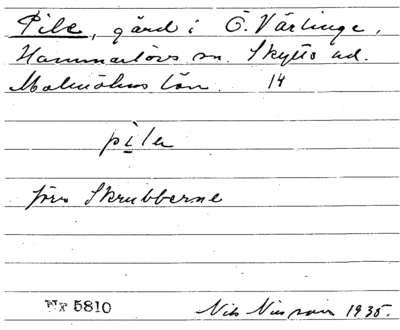 Pile, gård i Ö. Värlinge,
Hammarlövs sn. Skytts hd.
Malmöhus län. 14
pila
förr Skrubberne
Nr 5810 Nils Nilsson 1935.